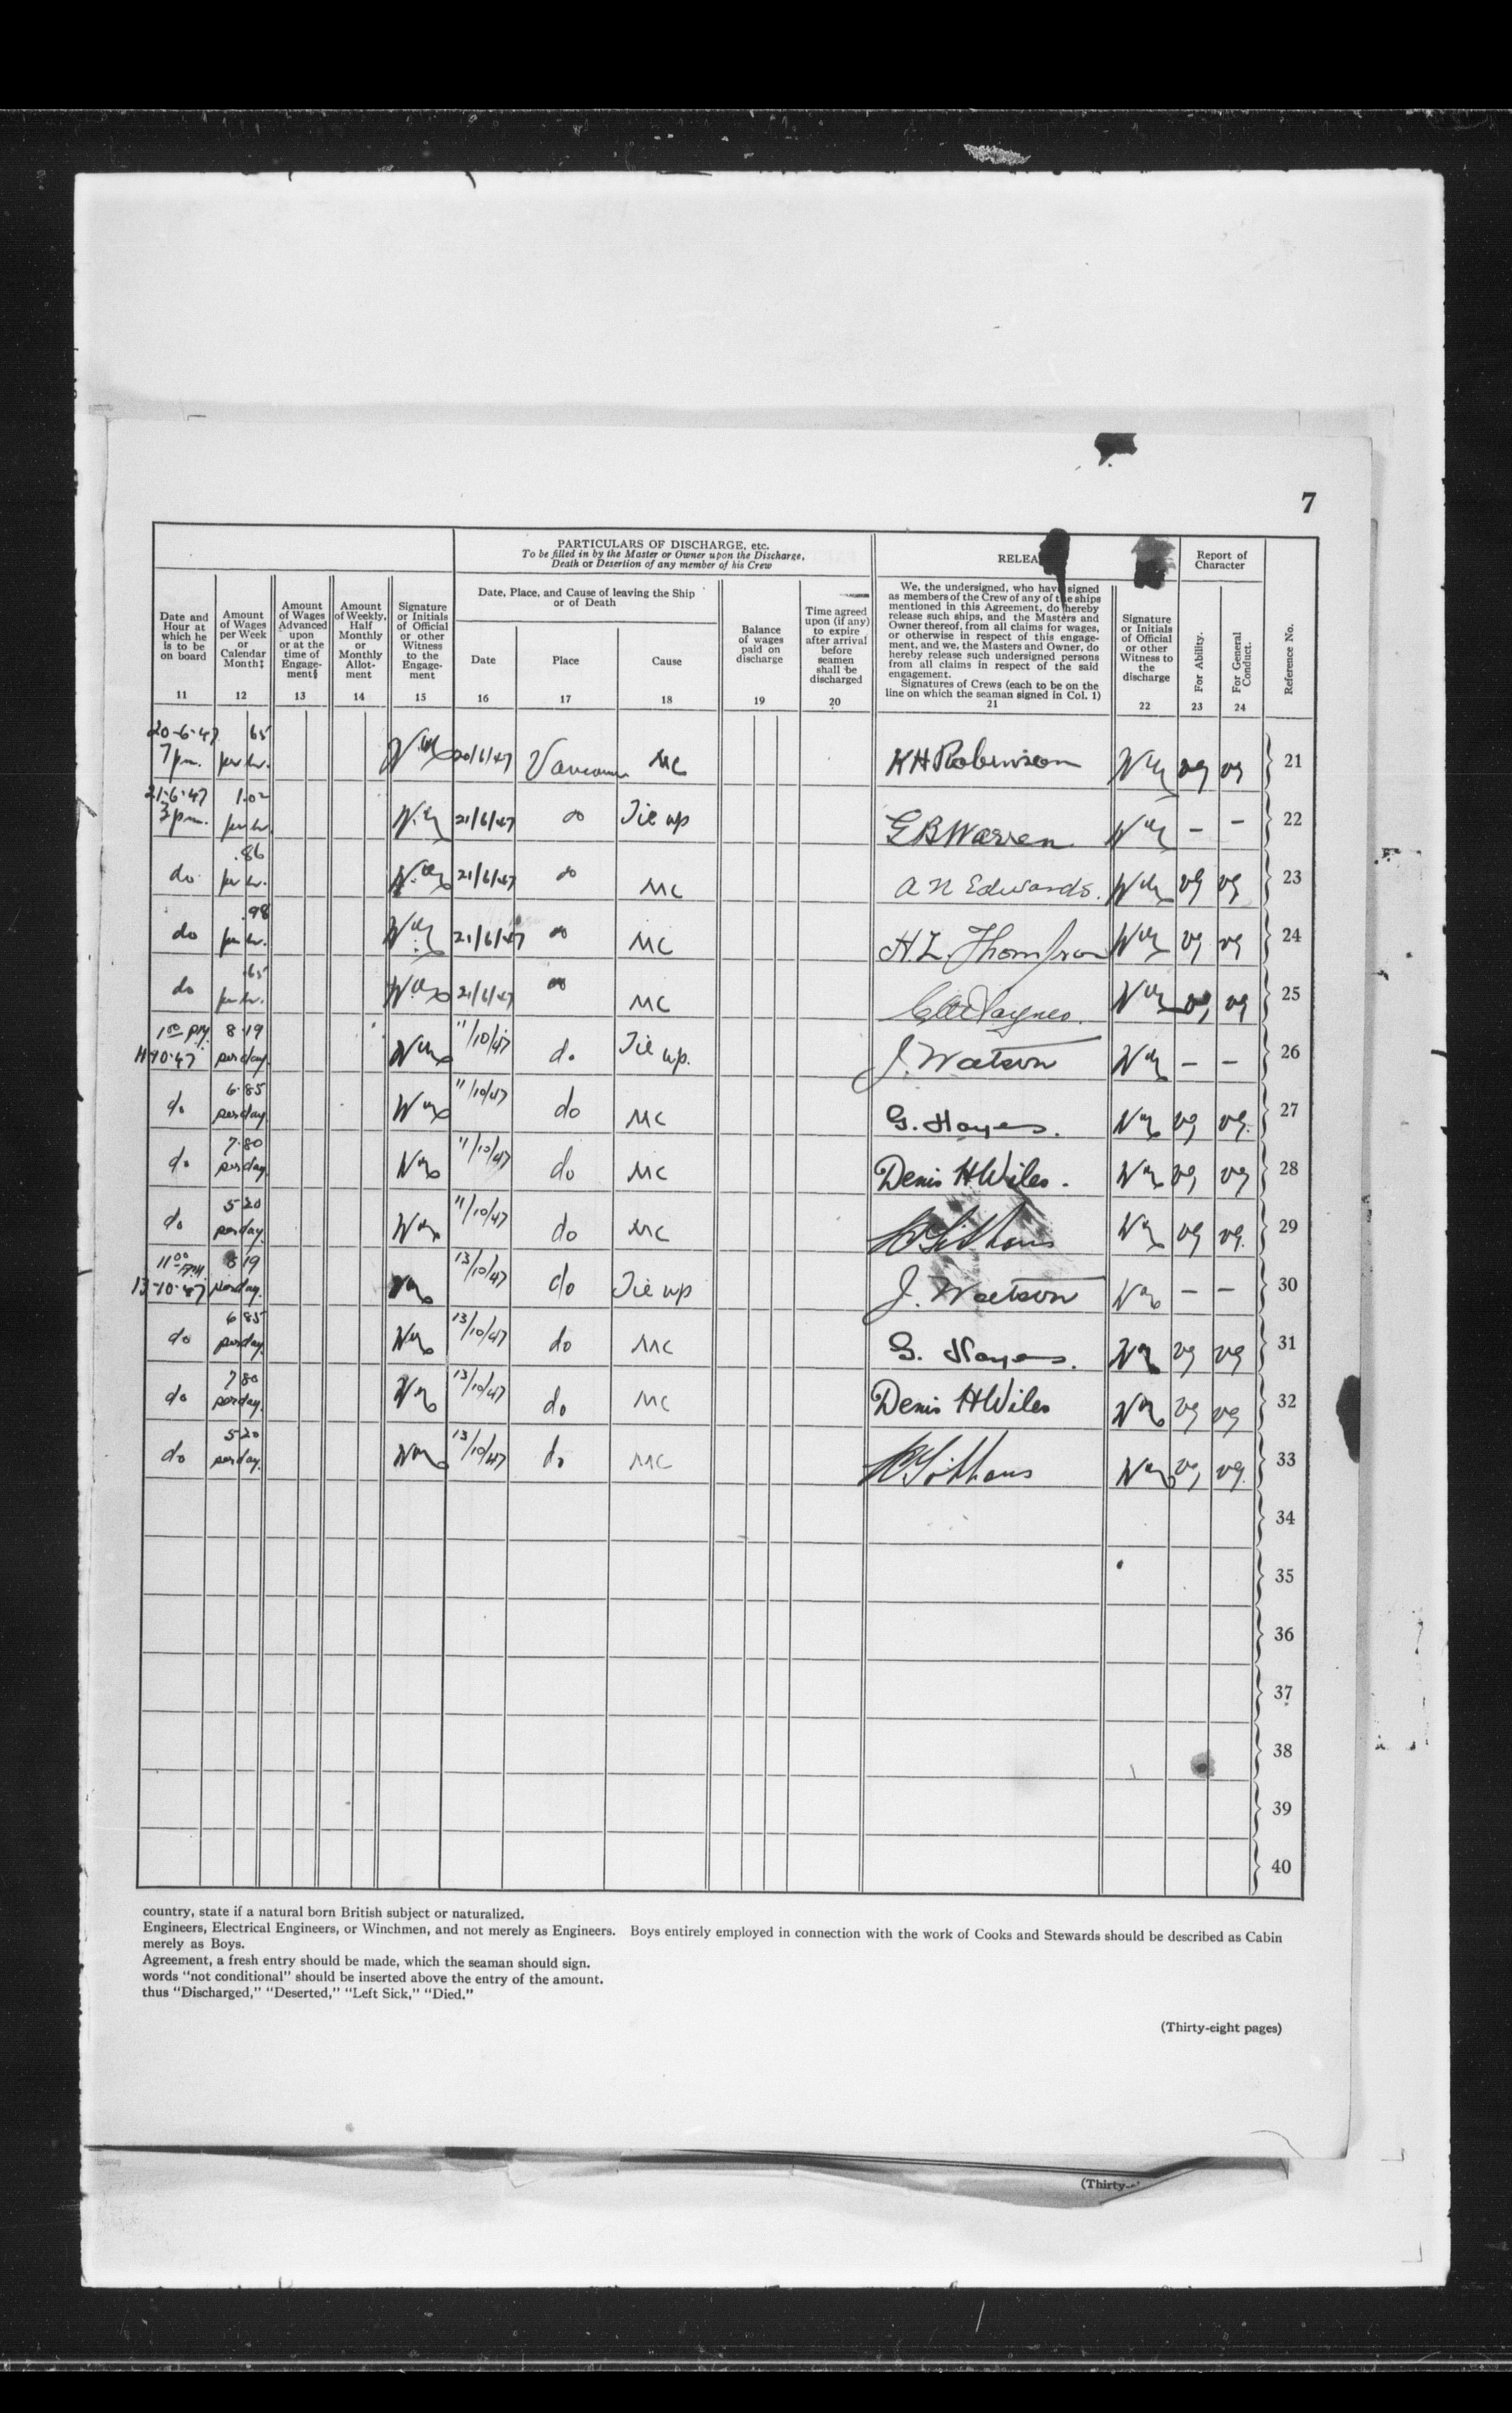 7
PARTICULARS OF DISCHARGE, etc.
To be filled in by the Master or Owner upon the Discharge,
Death or Desertion of any member of his Crew
RELEA
Report of
Character
Date and
Hour at
which he
is to be
on board
11
Amount
of Wages
per Week
or
Calendar
Month‡
12
Amount
of Wages
Advanced
upon
or at the
time of
Engage-
ment§
13
Amount
of Weekly,
Half
Monthly
or
Monthly
Allot-
ment
14
Signature
or Initials
of Official
or other
Witness
to the
Engage-
ment
15
Date, Place, and Cause of leaving the Ship
or of Death
Date
16
Place
17
Cause
18
Balance
of wages
paid on
discharge
19
Time agreed
upon (if any)
to expire
after arrival
before
seamen
shall be
discharged
20
We, the undersigned, who have signed
as members of the Crew of any of the ships
mentioned in this Agreement, do hereby
release such ships, and the Masters and
Owner thereof, from all claims for wages,
or otherwise in respect of this engage-
ment, and we, the Masters and Owner, do
hereby release such undersigned persons
from all claims in respect of the said
engagement.
Signatures of Crews (each to be on the
line on which the seaman signed in Col. 1)
21
Signature
or Initials
of Official
or other
Witness to
the
discharge
22
For Ability.
23
For General
Conduct.
24
Reference No.
20-6-47 7pm. .65 per hr. 20/6/47 Vancouver MC KH Robinson vg vg 21
21-6-47 3pm. 1.02 per hr. 21/6/47 do Tie up GB Warren — — 22
do .86 per hr. 21/6/47 do MC A N Edwards. vg vg 23
do .98 per hr. 21/6/47 do MC H.L. Thompson vg vg 24
do .65 per hr. 21/6/47 do MC vg vg 25
1 00 PM. 11-10-47 8.19 per day 11/10/47 do Tie up. J. Watson — — 26
do 6.85 per day 11/10/47 do MC G. Hayes. vg vg. 27
do 7.80 per day 11/10/47 do MC Denis H Wiles. vg vg 28
do 5 20 per day 11/10/47 do MC vg vg. 29
11 00 13-10-47 8 19 per day. 13/10/47 do Tie up J. Watson — — 30
do 6 85 per day. 13/10/47 do MC G. Hayes. vg vg 31
do 7 80 per day. 13/10/47 do MC Denis H Wiles vg vg 32
do 5 20 per day. 13/10/47 do MC vg vg. 33
34
35
36
37
38
39
40
country, state if a natural born British subject or naturalized.
Engineers, Electrical Engineers, or Winchmen, and not merely as Engineers. Boys entirely employed in connection with the work of Cooks and Stewards should be described as Cabin
merely as Boys.
Agreement, a fresh entry should be made, which the seaman should sign.
words "not conditional" should be inserted above the entry of the amount.
thus "Discharged," "Deserted," "Left Sick," "Died."
(Thirty-eight pages)
(Thirty-